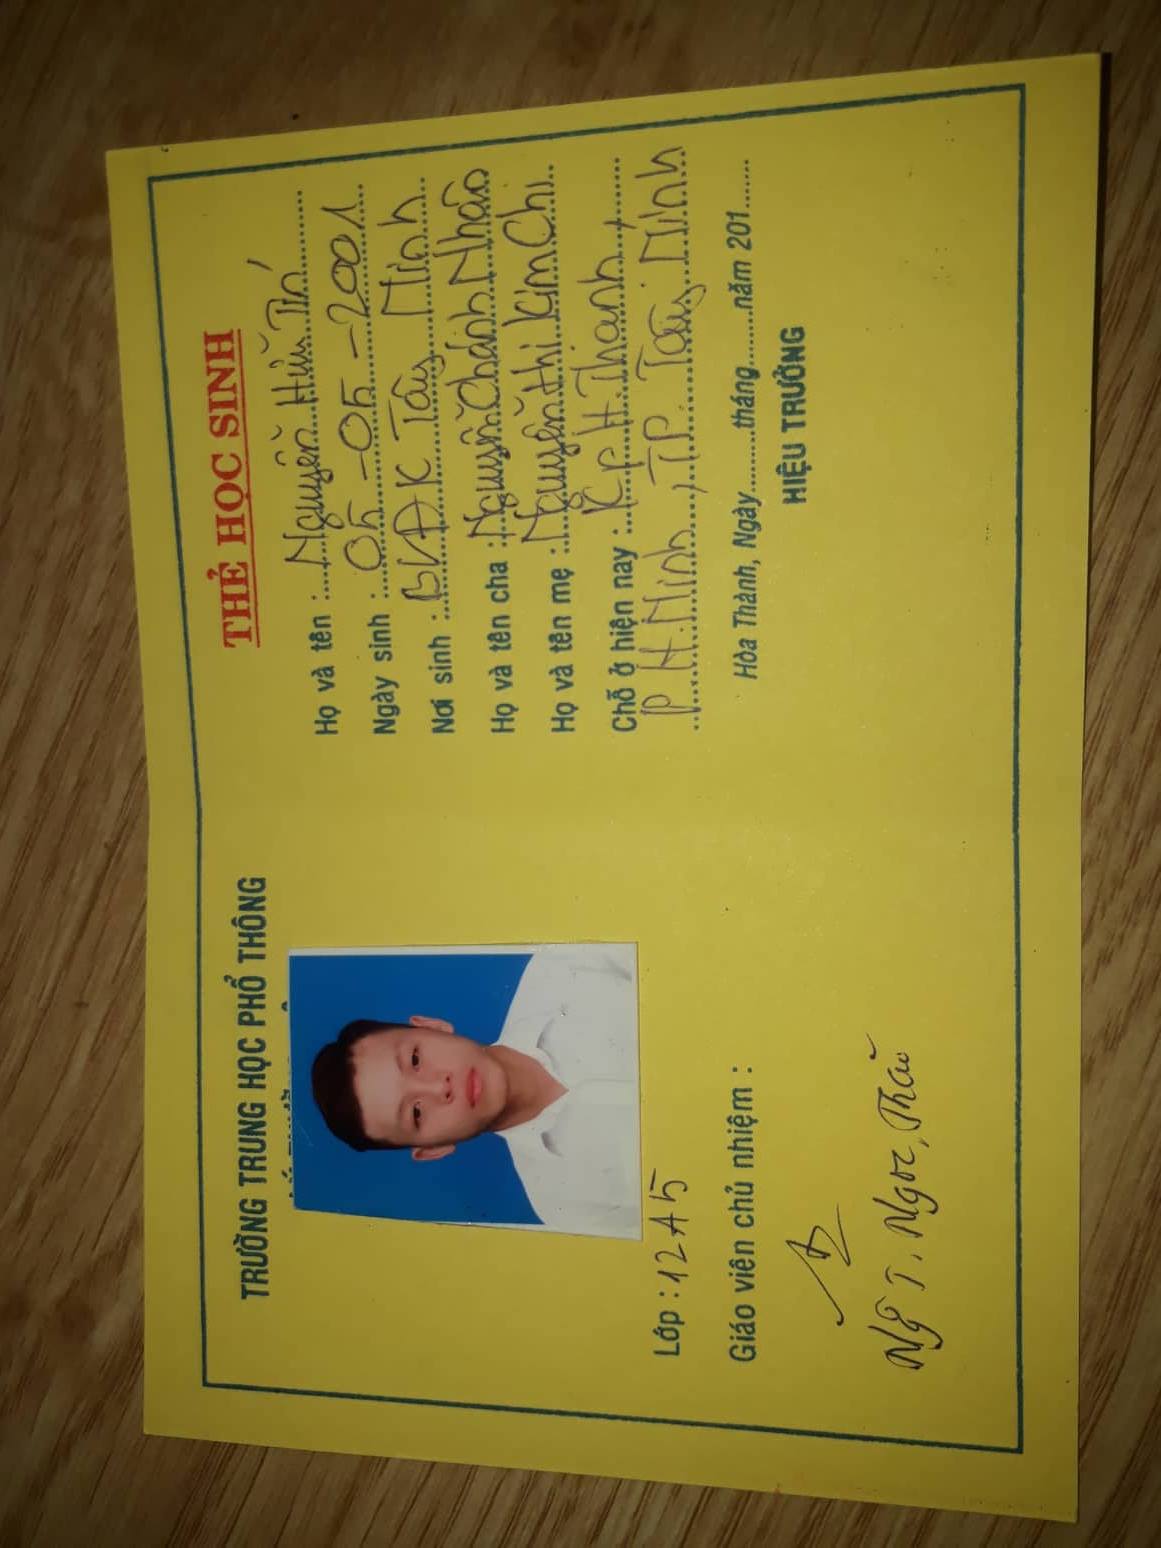 TRƯỜNG TRUNG HỌC PHỔ THÔNG
Lớp : 12A5
Giáo viên chủ nhiệm :
Ng T. Ngọc Thảo
THẺ HỌC SINH
Họ và tên : Nguyễn Hữu Tín
Ngày sinh : 05-05-2001
Nơi sinh : BVĐK Tây Ninh
Họ và tên cha : Nguyễn Chánh Nhân
Họ và tên mẹ : Nguyễn Thị Kim Chi
Chỗ ở hiện nay : KP H. Thạnh,
P H. Ninh, TP. Tây Ninh
Hòa Thành, Ngày.........tháng.........năm 201.......
HIỆU TRƯỞNG